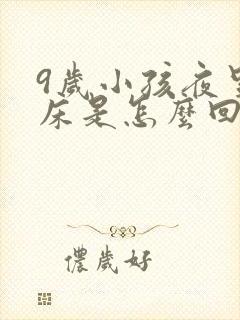 9歲小孩夜
床是怎麼回
儂歲好